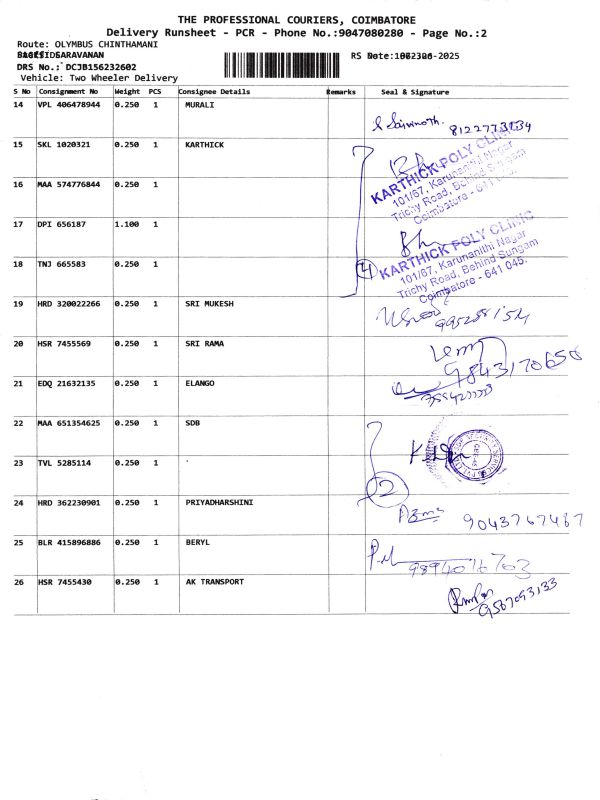 THE PROFESSIONAL COURIERS, COIMBATORE
Delivery Runsheet - PCR - Phone No.:9047080280 - Page No.:2
Route: OLYMBUS CHINTHAMANI
SARAVANAN
RS Date: -2025
DRS No.: DCJB156232602
Vehicle: Two Wheeler Delivery
S No Consignment No Weight PCS Consignee Details Remarks Seal & Signature
14 VPL 406478944 0.250 1 MURALI
S Saivinoth. 8122773134
15 SKL 1020321 0.250 1 KARTHICK
KARTHICK POLY CLINIC
101/67, Karunanithi Nagar
Trichy Road, Behind Sungam
Coimbatore - 641 045.
16 MAA 574776844 0.250 1
17 DPI 656187 1.100 1
KARTHICK POLY CLINIC
101/67, Karunanithi Nagar
Trichy Road, Behind Sungam
Coimbatore - 641 045.
18 TNJ 665583 0.250 1
4
19 HRD 320022266 0.250 1 SRI MUKESH
20 HSR 7455569 0.250 1 SRI RAMA
9843170650
21 EDQ 21632135 0.250 1 ELANGO
22 MAA 651354625 0.250 1 SDB
23 TVL 5285114 0.250 1
2
24 HRD 362230901 0.250 1 PRIYADHARSHINI
9043767487
25 BLR 415896886 0.250 1 BERYL
9894016703
26 HSR 7455430 0.250 1 AK TRANSPORT
9567093133